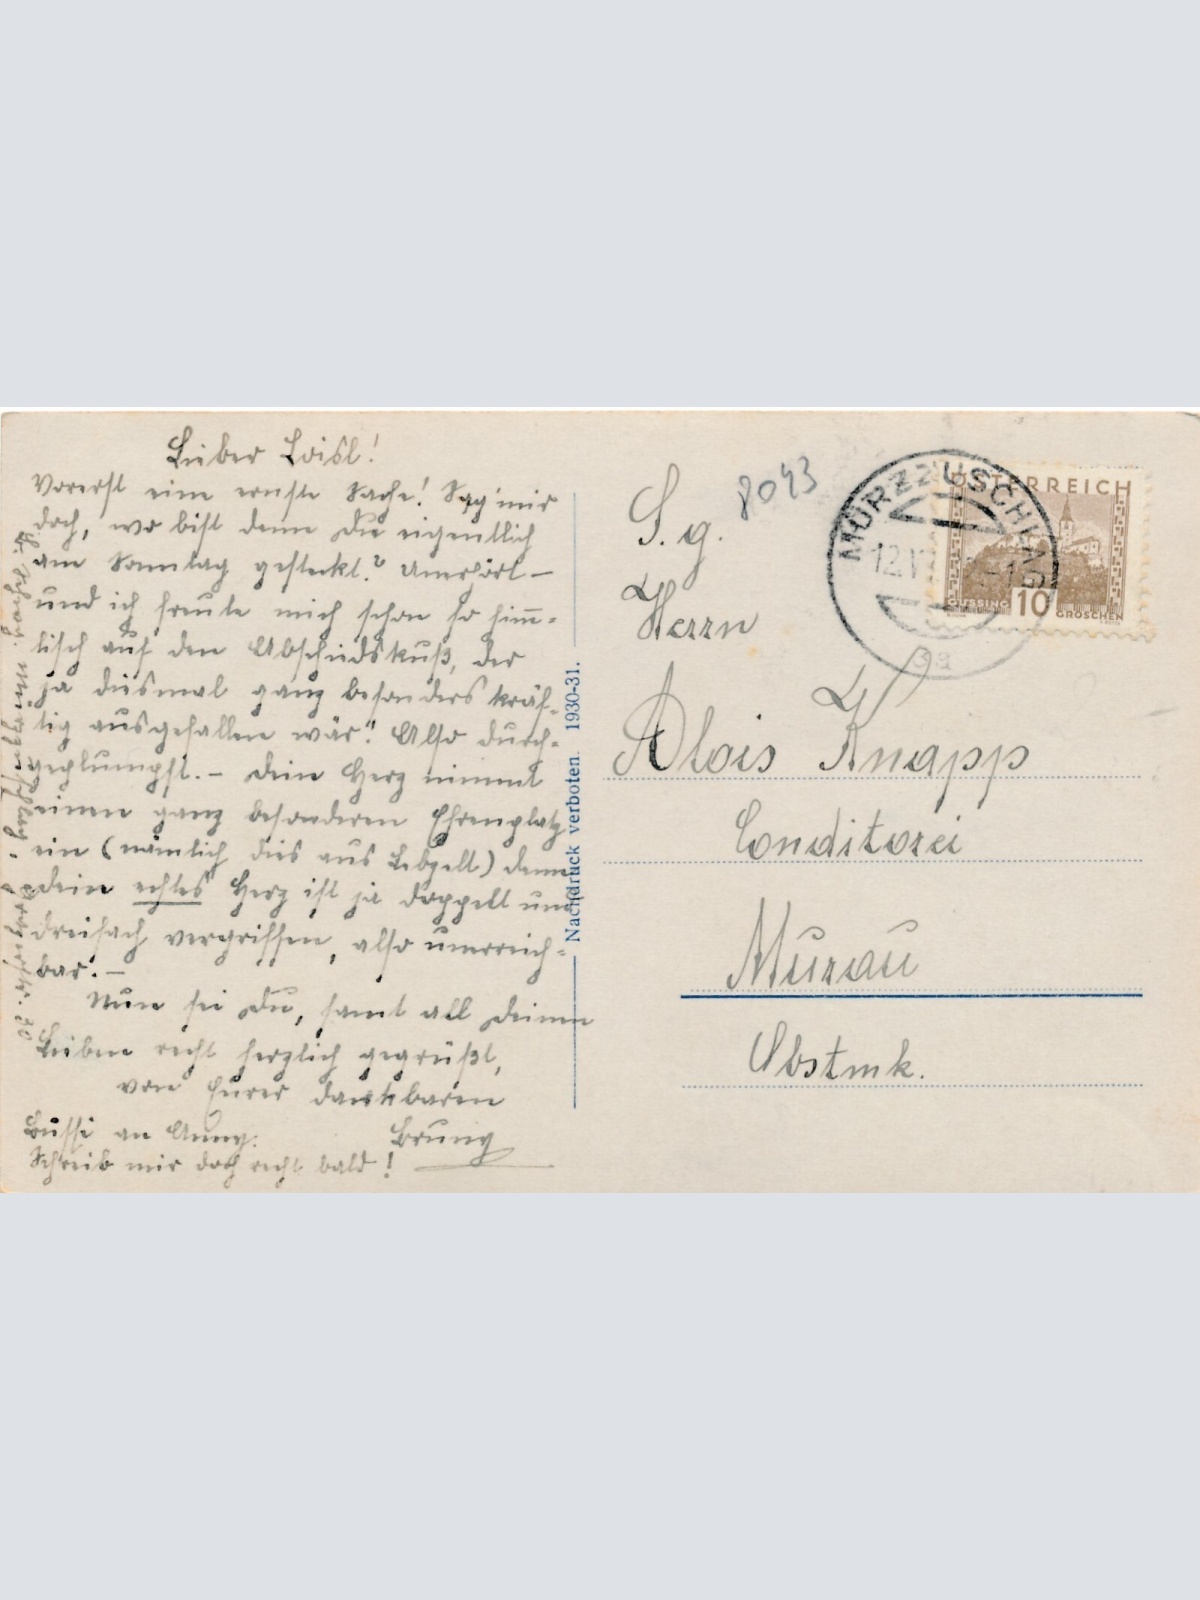 Lieber Loisl!
Vorerst eine ernste Sache! Sag' mir
doch, wo bist denn Du eigentlich
am Sonntag gesteckt? Unerhört –
und ich freute mich schon so himm-
lisch auf den Abschiedskuß, der
ja diesmal ganz besonders kräf-
tig ausgefallen wär'! Also durch-
geplumpst. – Dein Herz nimmt
einen ganz besonderen Ehrenplatz
ein (nämlich dies aus Lebzelt) denn
Dein echtes Herz ist ja doppelt und
dreifach vergriffen, also unerreich-
bar. –
Nun sei Du, samt all Deinen
Lieben recht herzlich gegrüßt,
von Eurer dankbaren
Bussi an Anny.
Schreib mir doch recht bald!
Mürzzuschlag
30
Nachdruck verboten. 1930-31.
S. g.
8043
Herrn
Alois Knapp
Conditorei
Murau
Obstmk.
MÜRZZUSCHLAG
12.V
3a
ÖSTERREICH
GÜSSING
10
GROSCHEN